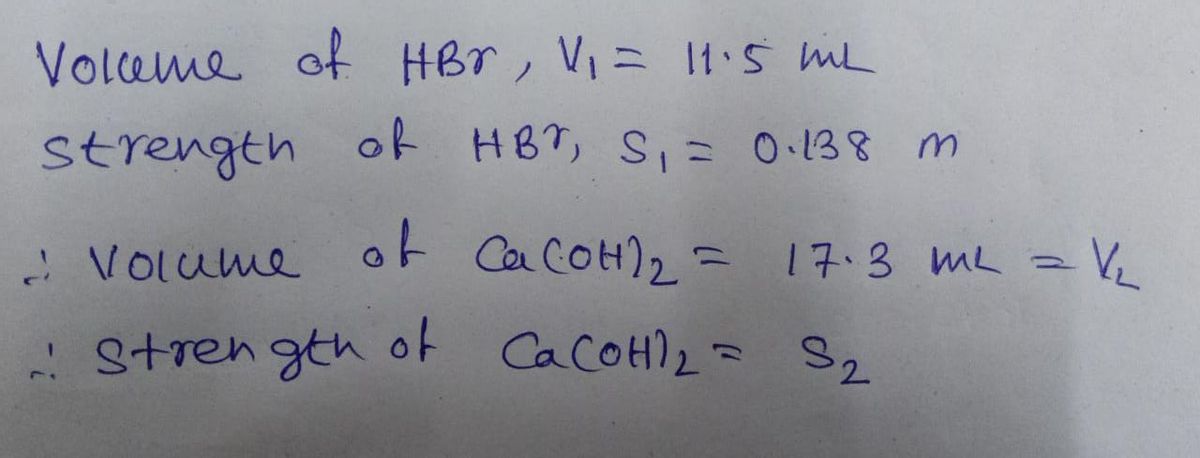 Volume of HBr, V₁ = 11.5 mL
strength of HBr, S₁ = 0.138 m
∴ Volume of Ca(OH)₂ = 17.3 mL = V₂
∴ Strength of Ca(OH)₂ = S₂